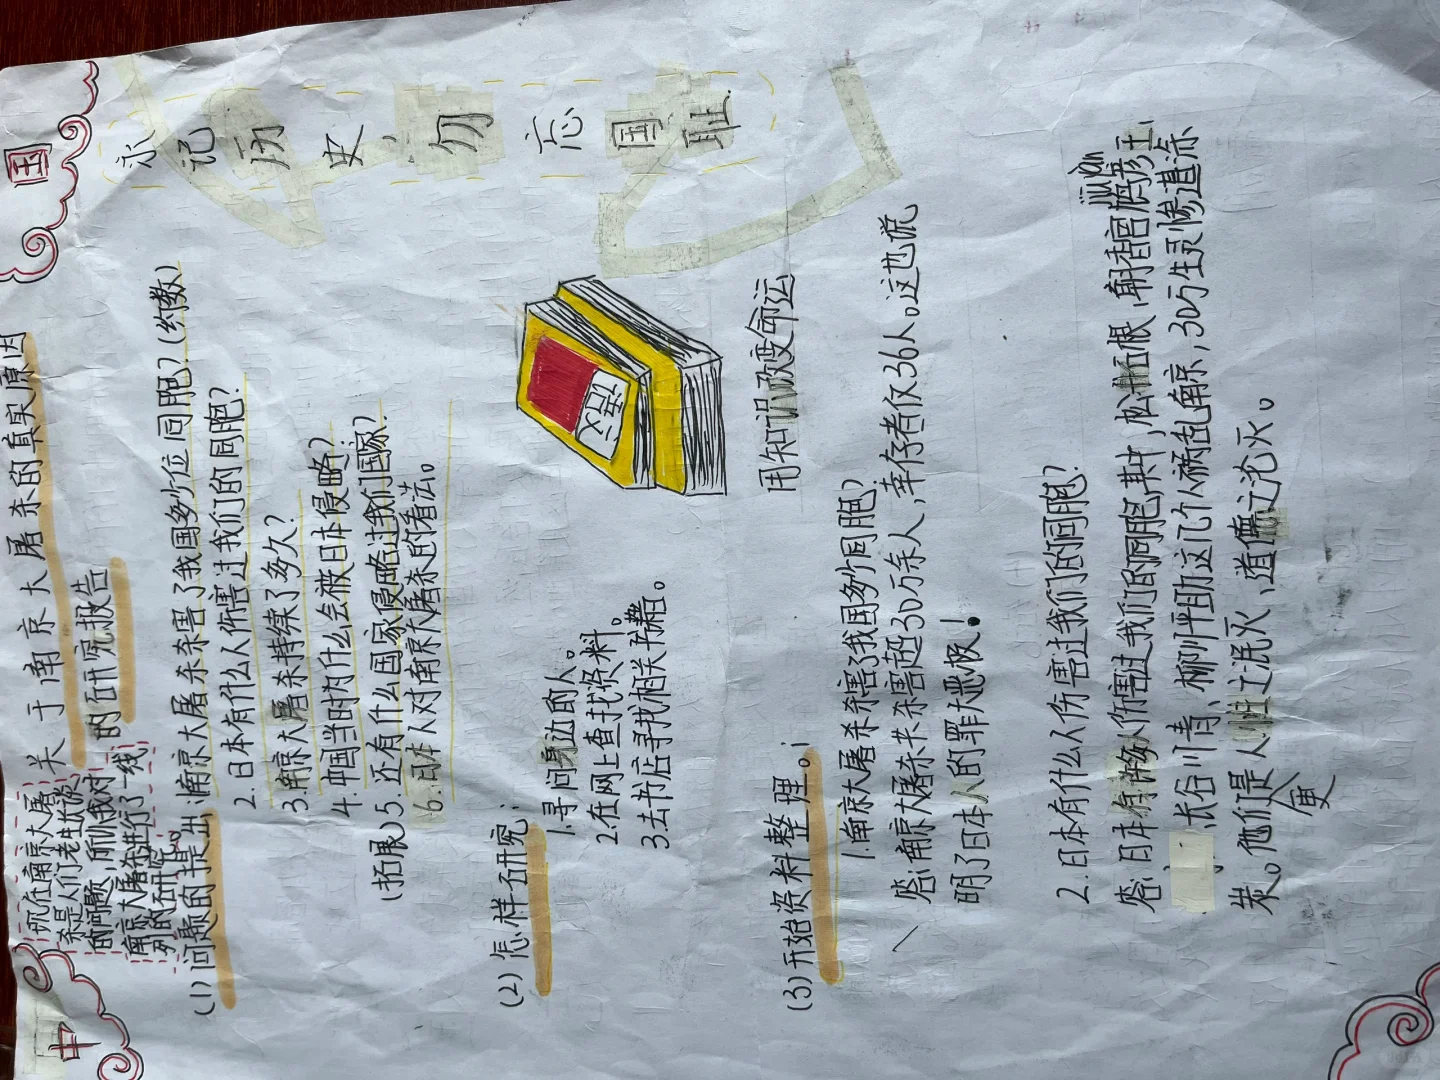 中
国
关于南京大屠杀的真实原因
的研究报告
现在南京大屠
杀是人们老生长谈
的问题,所以我对
南京大屠杀进行了一线
列的研究。
永记历史,勿忘国耻.
(1)问题的提出:
1.南京大屠杀杀害了我国多少位同胞?(约数)
2.日本有什么人伤害过我们的同胞?
3.南京大屠杀持续了多久?
4.中国当时为什么会被日本侵略?
(拓展)5.还有什么国家侵略过我们国家?
6.日本人对南京大屠杀的看法。
(2)怎样研究:
1.寻问身边的人。
2.在网上查找资料。
3.去书店寻找相关书籍。
语文
用知识改变命运
(3)开始资料整理。:
1.南京大屠杀杀害了我国多少同胞?
答:南京大屠杀共杀害超30万余人,幸存者仅36人。这也说
明了日本人的罪大恶极!
2.日本有什么人伤害过我们的同胞?
答:日本有许多人伤害过我们的同胞,其中,松井石根、朝香宫鸠彦王、
jiū yàn
长谷川清、柳川平助这几个人祸乱南京,30万生灵惨遭涂
炭。他们是人性之泯灭、道儒之沦灭。
更